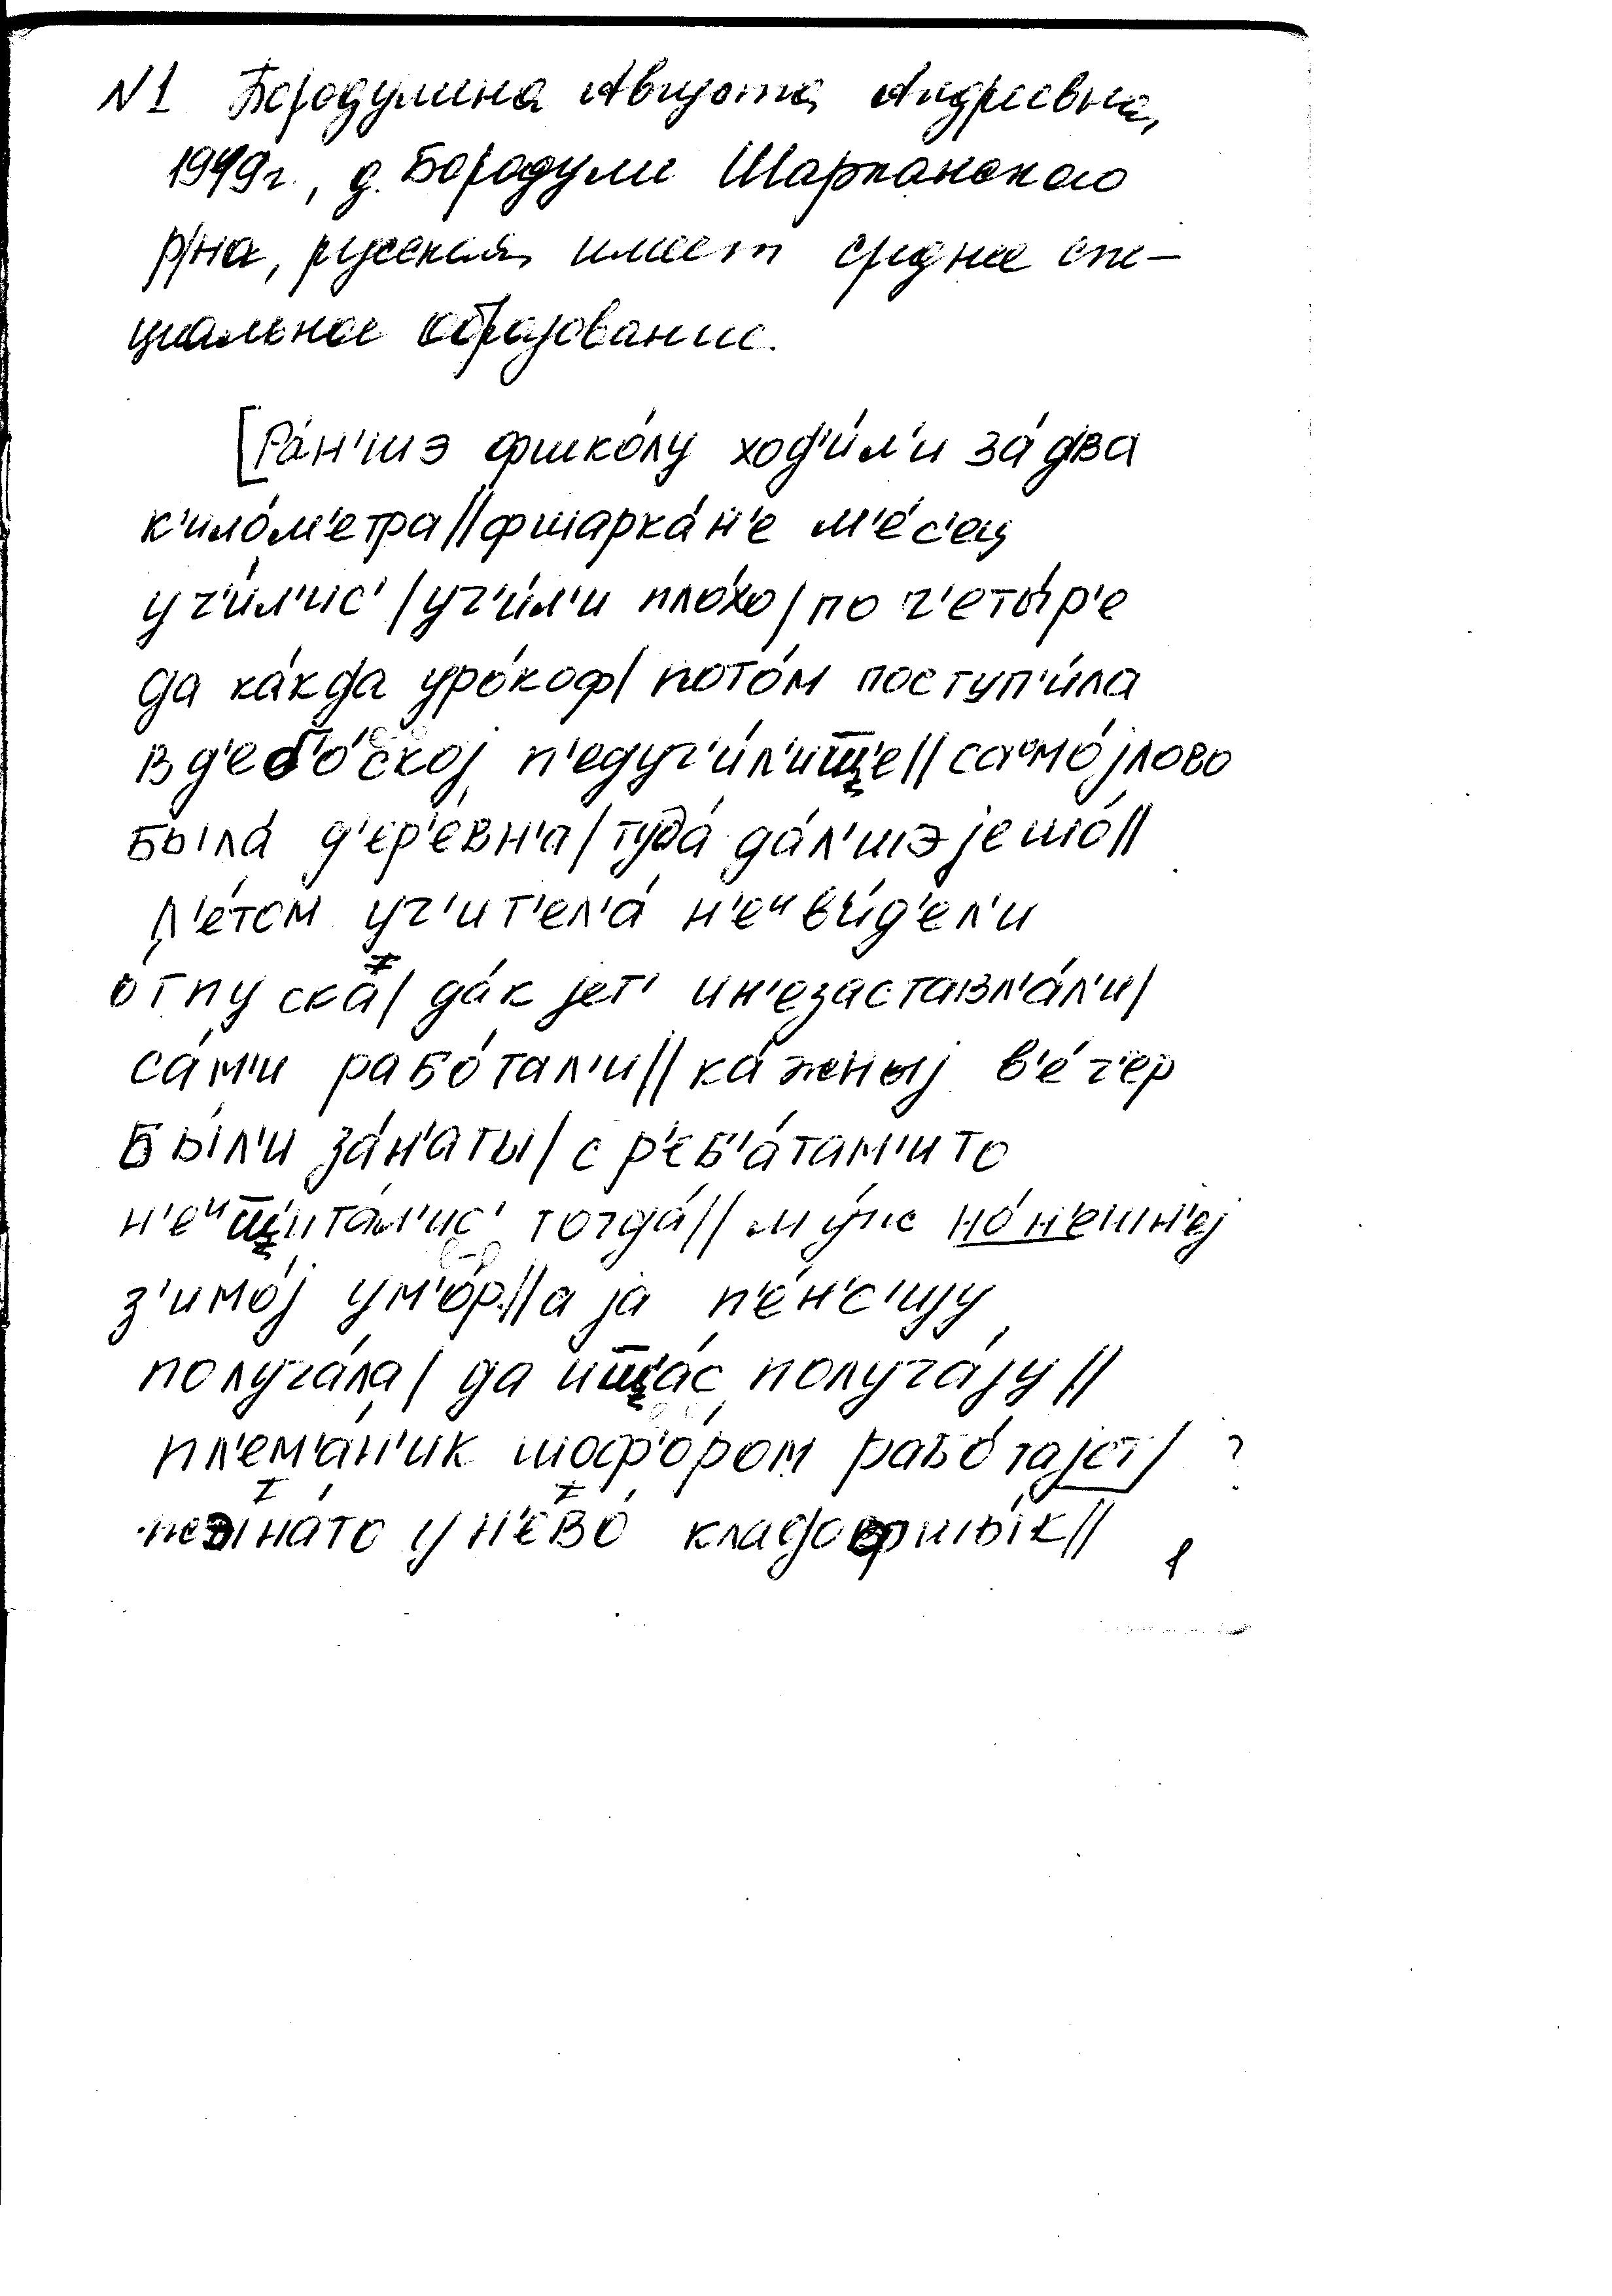 N1 Бородулина Августа Андреевна,
1949г., д. Бородули Шарканского
р/на, русская, имеет среднее спе–
циальное образование.
[Ра́н'шэ фшко́лу ход'и́л'и за́ два
к'ило́м'етра//фшарка́н'е м'е́с'ец
уч'и́л'ис'/уч'и́л'и пло́хо/по ч'еты́р'е
да ка́кда уро́коф/ пото́м поступ'и́ла
в д'еб'о́ској п'едуч'и́л'ище//само́јлово
была́ д'ер'е́вн'а/туда́ да́л'шэ јешо́//
л'е́том уч'ит'ел'а́ н'еивы́д'ел'и
о́тпуска/ да́к јет' ин'езаставл'а́л'и/
са́м'и рабо́тал'и//ка́жныј в'е́ч'ер
бы́л'и за́н'аты/с р'еб'а́там'ито
н'еищ'ита́л'ис' тогда́//му́ж но́н'ешн'еј
з'имо́ј ум'о́р//а ја п'е́н'с'ију
получа́ла/ да ища́с получа́ју//
пл'ем'а́н'ик шоф'о́ром рабо́тајет/ ?
у н'ево́